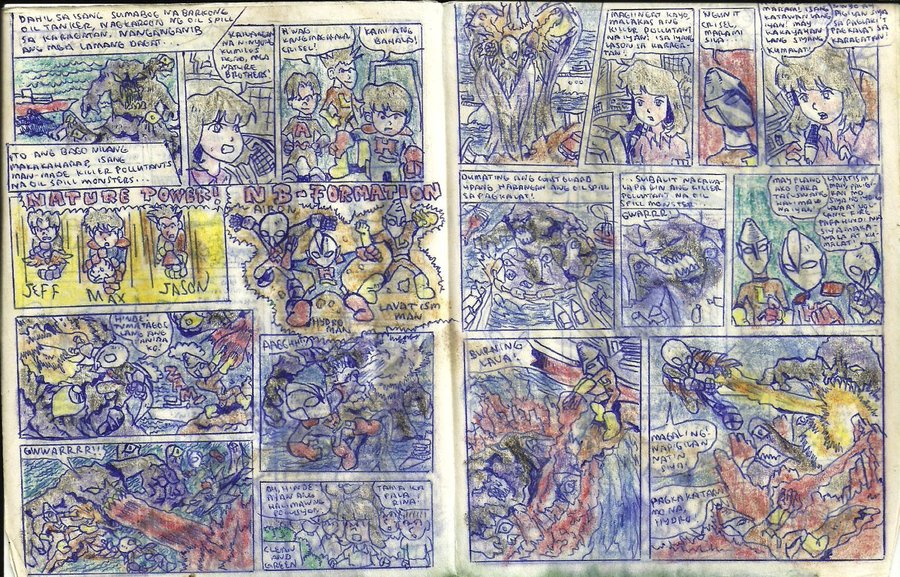 DAHIL SA ISANG SUMABOG NA BARKONG
OIL TANKER, NAGKAROON NG OIL SPILL
SA KARAGATAN. NANGANGANIB
ANG MGA LAMANG DAGAT...
KAILANGAN
NA N'NYONG
KUMILOS
AGAD, MGA
NATURE
BROTHERS!
H'WAG
KANG MAG-ALALA
CRISEL!
KAMI ANG
BAHALA!
ITO ANG BAGO NILANG
MAKAKAHARAP, ISANG
MAN MADE KILLER POLLUTANTS
NA OIL SPILL MONSTERS...
NATURE POWER!
JEFF
MAX
JASON
NB-FORMATION
AIRON
HYDRO
MAN
LAVATISM
MAN
HINDE
TUMATAGOS
LANG ANG
KO!
AACCHH!
GWWARRRR!!
ANG
HALIMAW NG
POLUSYON
TAMA KA
PALA
RINA!
CLEAN
AND
GREEN
MAGIINGAT KAYO,
MALAKAS ANG
KILLER POLLUTANT
NA 'YAN! ISA 'YANG
LASON SA KARAGA-
TAN!
NGUNIT
CRISEL,
MARAMI
SILA!
MARAMI! ISANG
KATAWAN LANG
'YAN! MAY
KAKAYAHAN
LANG S'YANG
KUMALAT!
PIGILAN S'YA
SA
PAGKALAT SA
KARAGATAN!
DUMATING ANG COAST GUARD
UPANG HARANGAN ANG OIL SPILL
SA PAGKALAT!
SUBALIT NAGAWA
LAPAGIN ANG KILLER
POLLUTANT NA OIL
SPILL MONSTER!
GWARRR!
MAY PLANO
AKO PARA
HALIMAW
NA 'YAN!
LAVATISM
MAN,
MO
PARA HINDI NA
SIYA MAKA
KU-
MALAT!
BURNING
LAVA!
MAGALING!
NAPIGILAN
NATIN
S'YA!
PAGKAKATAON
MO NA,
HYDRO